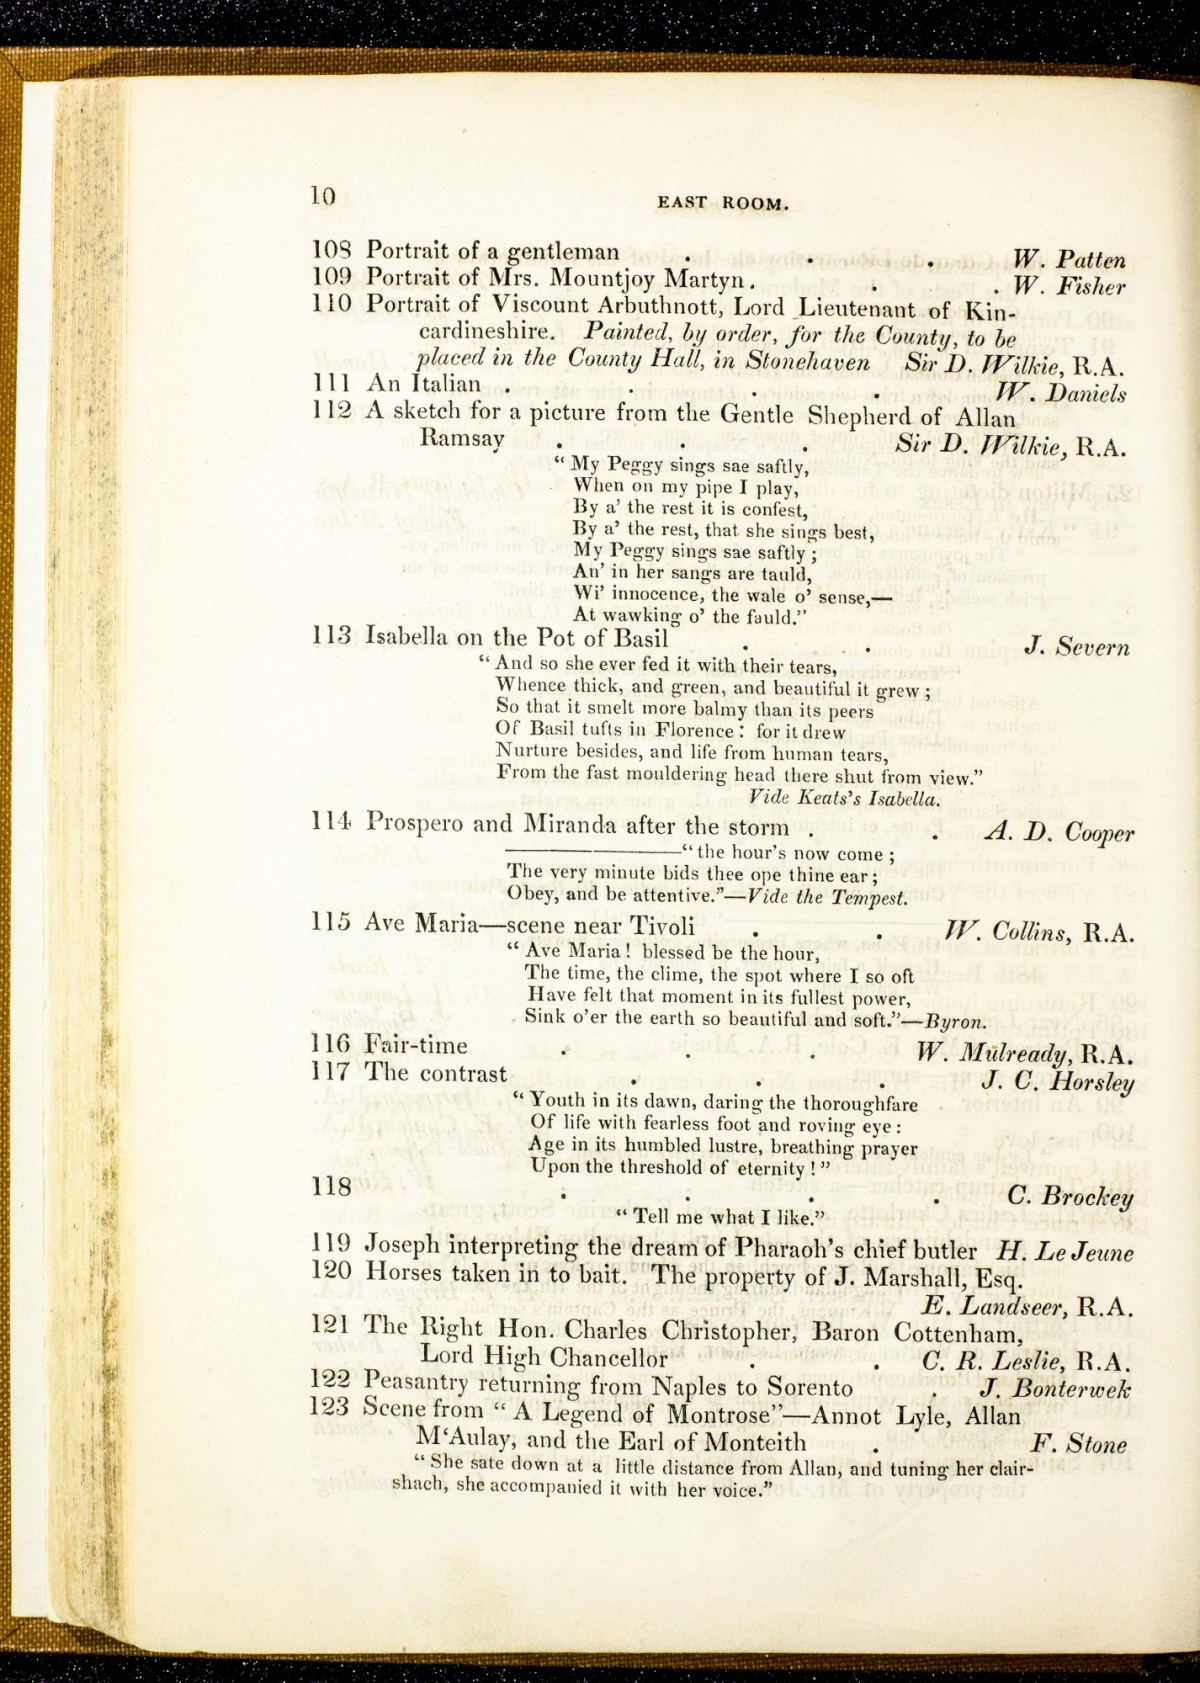 10 EAST ROOM.
108 Portrait of a gentleman . . . W. Patten
109 Portrait of Mrs. Mountjoy Martyn . . . W. Fisher
110 Portrait of Viscount Arbuthnott, Lord Lieutenant of Kin-
cardineshire. Painted, by order, for the County, to be
placed in the County Hall, in Stonehaven Sir D. Wilkie, R.A.
111 An Italian . . . . W. Daniels
112 A sketch for a picture from the Gentle Shepherd of Allan
Ramsay . . . Sir D. Wilkie, R.A.
“ My Peggy sings sae saftly,
When on my pipe I play,
By a’ the rest it is confest,
By a’ the rest, that she sings best,
My Peggy sings sae saftly ;
An’ in her sangs are tauld,
Wi’ innocence, the wale o’ sense,—
At wawking o’ the fauld.”
113 Isabella on the Pot of Basil . . J. Severn
“ And so she ever fed it with their tears,
Whence thick, and green, and beautiful it grew ;
So that it smelt more balmy than its peers
Of Basil tufts in Florence : for it drew
Nurture besides, and life from human tears,
From the fast mouldering head there shut from view.”
Vide Keats’s Isabella.
114 Prospero and Miranda after the storm . . A. D. Cooper
——————“ the hour’s now come ;
The very minute bids thee ope thine ear ;
Obey, and be attentive.”—Vide the Tempest.
115 Ave Maria—scene near Tivoli . . W. Collins, R.A.
“ Ave Maria ! blessed be the hour,
The time, the clime, the spot where I so oft
Have felt that moment in its fullest power,
Sink o’er the earth so beautiful and soft.”—Byron.
116 Fair-time . . . W. Mulready, R.A.
117 The contrast . . . J. C. Horsley
“ Youth in its dawn, daring the thoroughfare
Of life with fearless foot and roving eye :
Age in its humbled lustre, breathing prayer
Upon the threshold of eternity ! ”
118 . . . . C. Brockey
“ Tell me what I like.”
119 Joseph interpreting the dream of Pharaoh’s chief butler H. Le Jeune
120 Horses taken in to bait. The property of J. Marshall, Esq.
E. Landseer, R.A.
121 The Right Hon. Charles Christopher, Baron Cottenham,
Lord High Chancellor . . C. R. Leslie, R.A.
122 Peasantry returning from Naples to Sorento . J. Bonterwek
123 Scene from “ A Legend of Montrose”—Annot Lyle, Allan
M‘Aulay, and the Earl of Monteith . F. Stone
“ She sate down at a little distance from Allan, and tuning her clair-
shach, she accompanied it with her voice.”